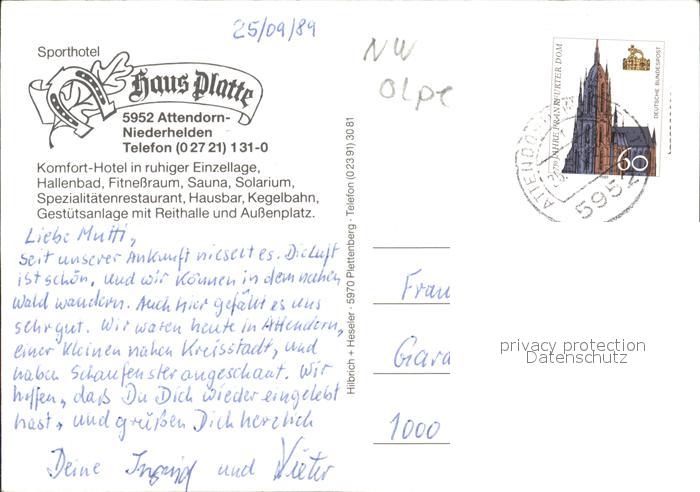 25/09/89
NW
Olpe
Sporthotel
Haus Platte
5952 Attendorn-
Niederhelden
Telefon (0 27 21) 1 31-0
Komfort-Hotel in ruhiger Einzellage,
Hallenbad, Fitneßraum, Sauna, Solarium,
Spezialitätenrestaurant, Hausbar, Kegelbahn,
Gestütsanlage mit Reithalle und Außenplatz.
Liebe Mutti,
seit unserer Ankunft nieselt es. Die Luft
ist schön, und wir können in dem nahen
Wald wandern. Auch hier gefällt es uns
sehr gut. Wir waren heute in Attendorn,
einer kleinen nahen Kreisstadt, und
haben Schaufenster angeschaut. Wir
hoffen, daß Du Dich wieder eingelebt
hast, und grüßen Dich herzlich
Deine Ingrid und Dieter
Hilbrich + Heseler · 5970 Plettenberg · Telefon (0 23 91) 30 81
JAHRE FRANKFURTER DOM
DEUTSCHE BUNDESPOST
60
ATTENDORN
5952
Frau
Gara
1000
privacy protection
Datenschutz